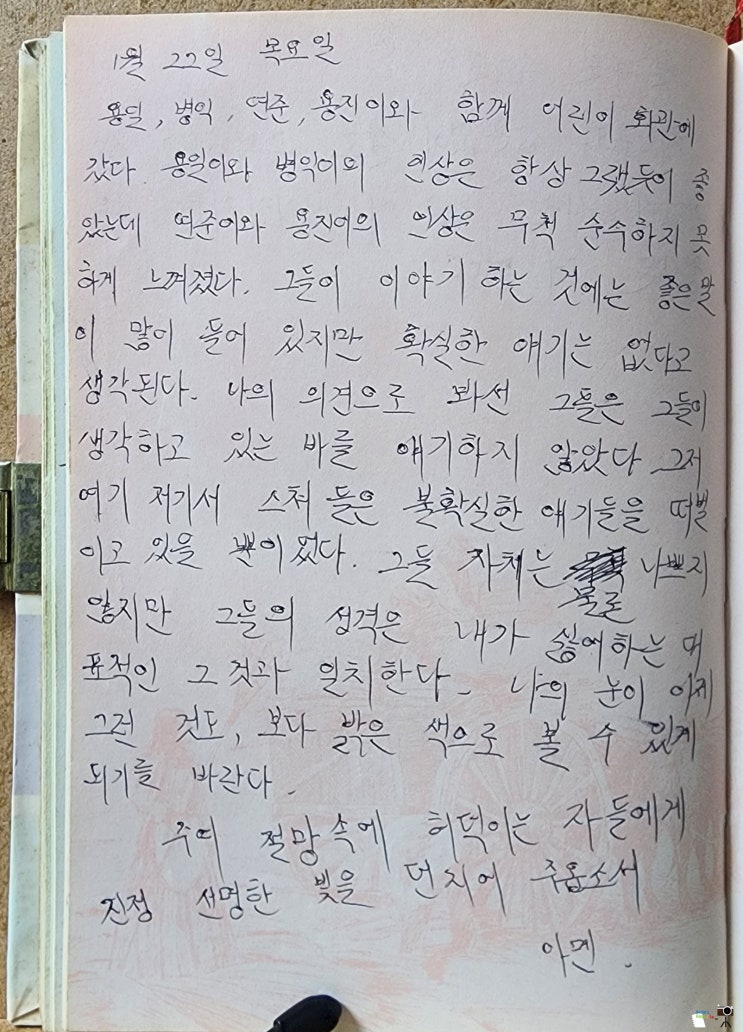 1월 22일 목요일
용일, 병익, 연준, 용진이와 함께 어린이 회관에
갔다. 용일이와 병익이의 인상은 항상 그랬듯이 좋
았는데 연준이와 용진이의 인상은 무척 순수하지 못
하게 느껴졌다. 그들이 이야기 하는 것에는 좋은 말
이 많이 들어 있지만 확실한 얘기는 없다고
생각된다. 나의 의견으로 봐선 그들은 그들이
생각하고 있는 바를 얘기하지 않았다 그저
여기 저기서 스쳐 들은 불확실한 얘기들을 떠벌
이고 있을 뿐이었다. 그들 자체는 물론 나쁘지
않지만 그들의 성격은 내가 싫어하는 대
표적인 그것과 일치한다. 나의 눈이 이제
그런 것도, 보다 밝은 색으로 볼 수 있게
되기를 바란다.
주여 절망 속에 허덕이는 자들에게
진정 선명한 빛을 던지어 주옵소서
아멘.